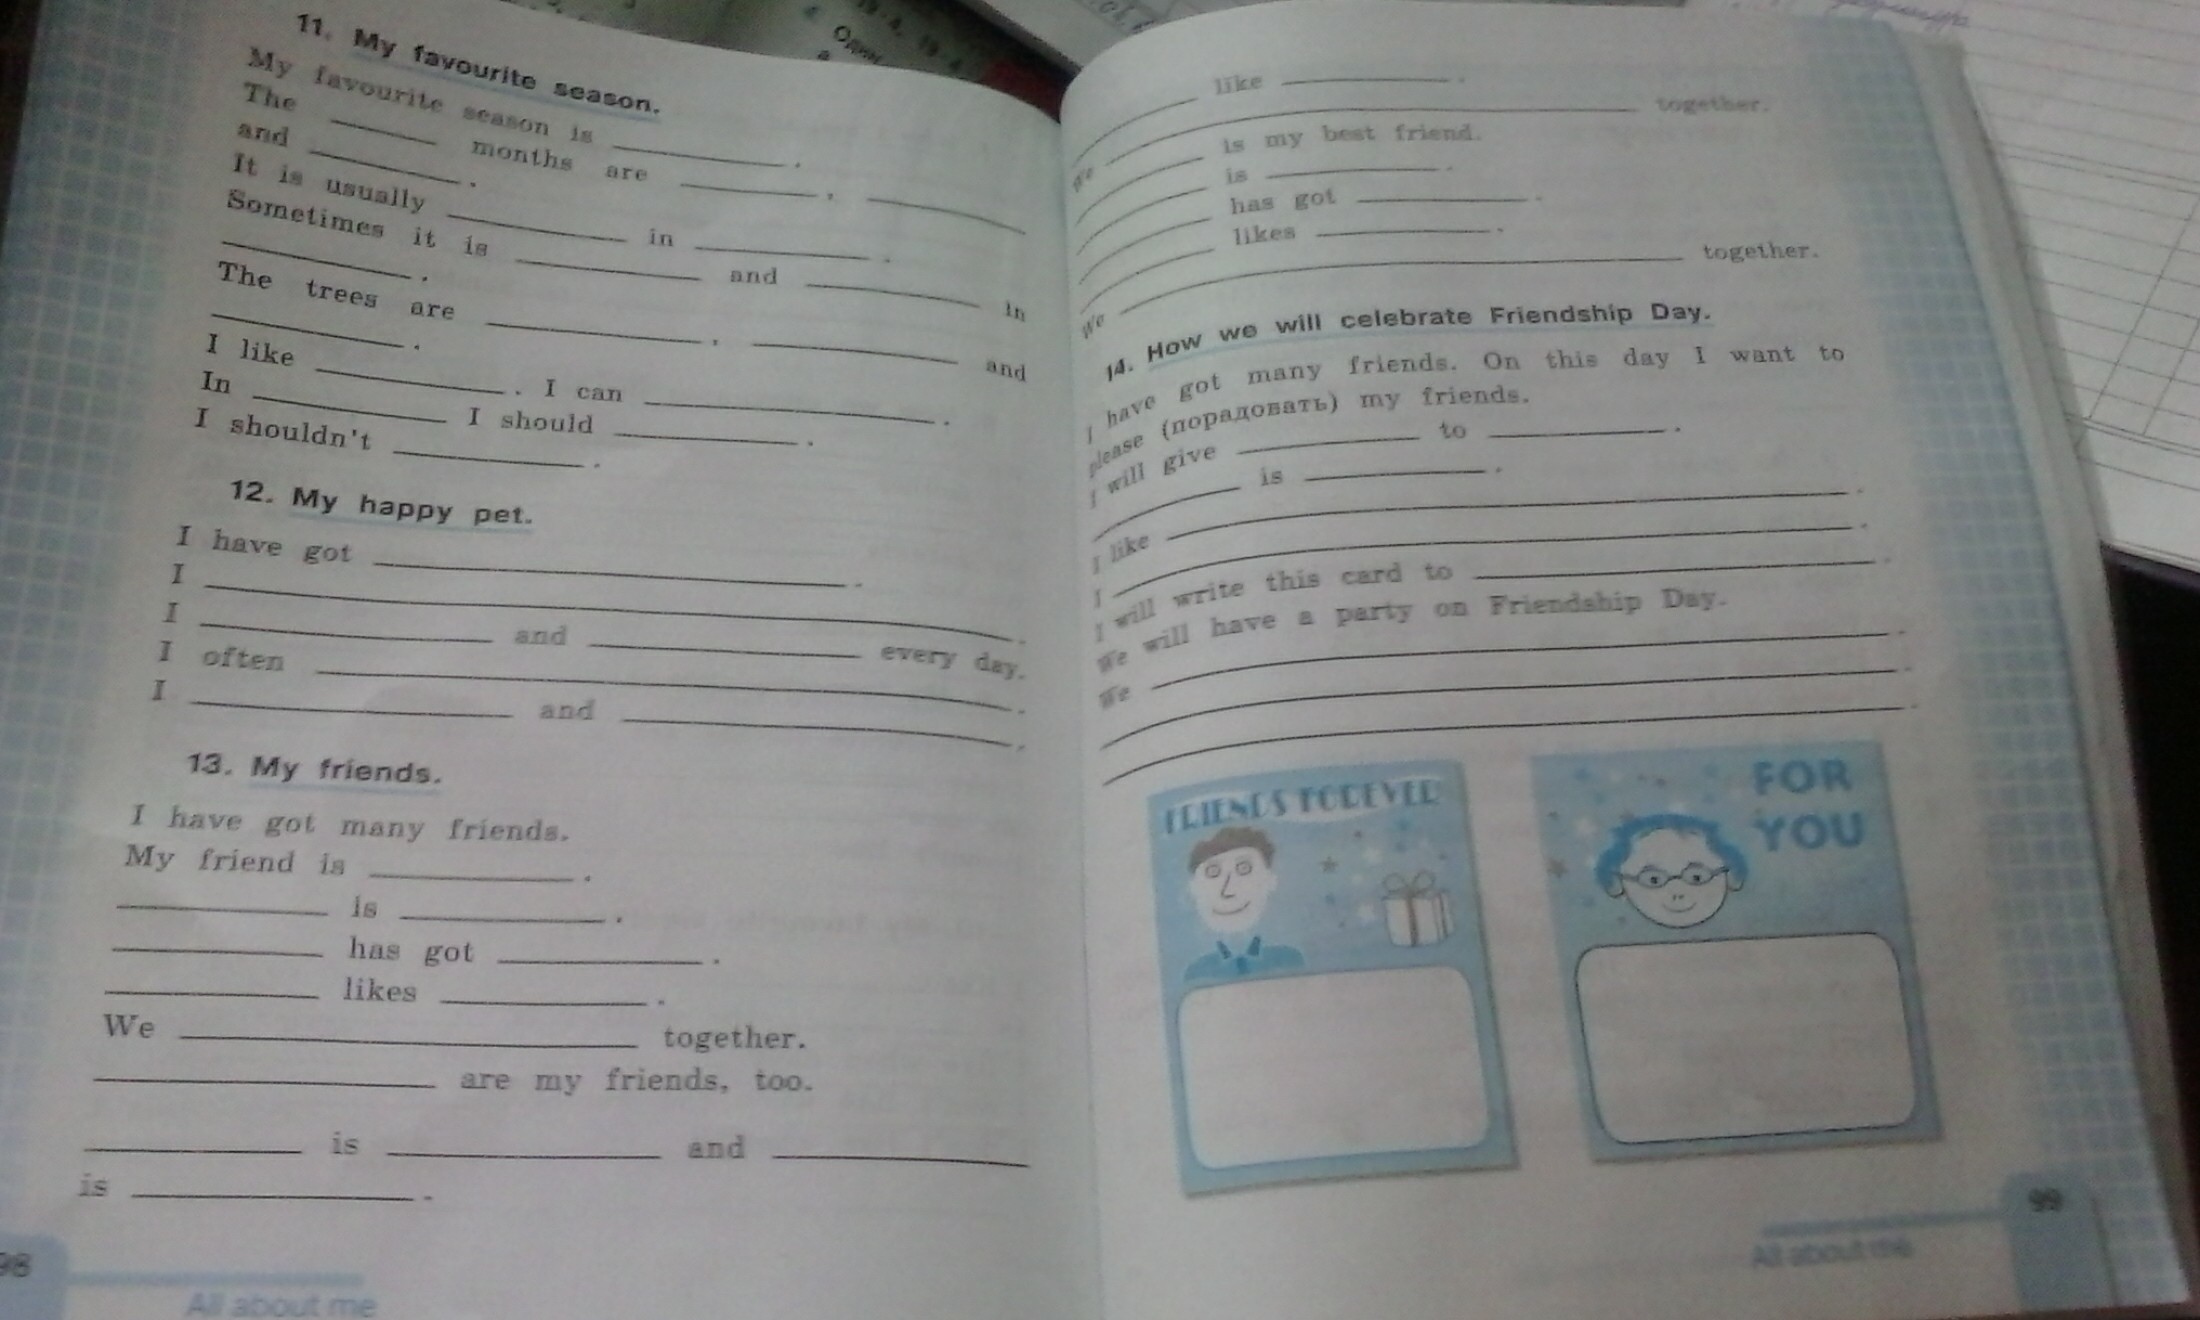 11. My favourite season.
My favourite season is ____.
The ____ months are ____, ____
and ____.
It is usually ____ in ____.
Sometimes it is ____ and ____ in
____.
The trees are ____, ____ and
____.
I like ____. I can ____.
In ____ I should ____.
I shouldn't ____.
12. My happy pet.
I have got ____.
I ____.
I ____ and ____ every day.
I often ____.
I ____ and ____.
13. My friends.
I have got many friends.
My friend is ____.
____ is ____.
____ has got ____.
____ likes ____.
We ____ together.
____ are my friends, too.
____ is ____ and ____
is ____.
98
All about me
____ like ____.
We ____ together.
____ is my best friend.
____ is ____.
____ has got ____.
____ likes ____.
We ____ together.
14. How we will celebrate Friendship Day.
I have got many friends. On this day I want to
please (порадовать) my friends.
I will give ____ to ____.
____ is ____.
I like ____.
I ____.
I will write this card to ____.
We will have a party on Friendship Day.
We ____.
____.
____.
FRIENDS FOREVER
FOR
YOU
99
All about me
Один